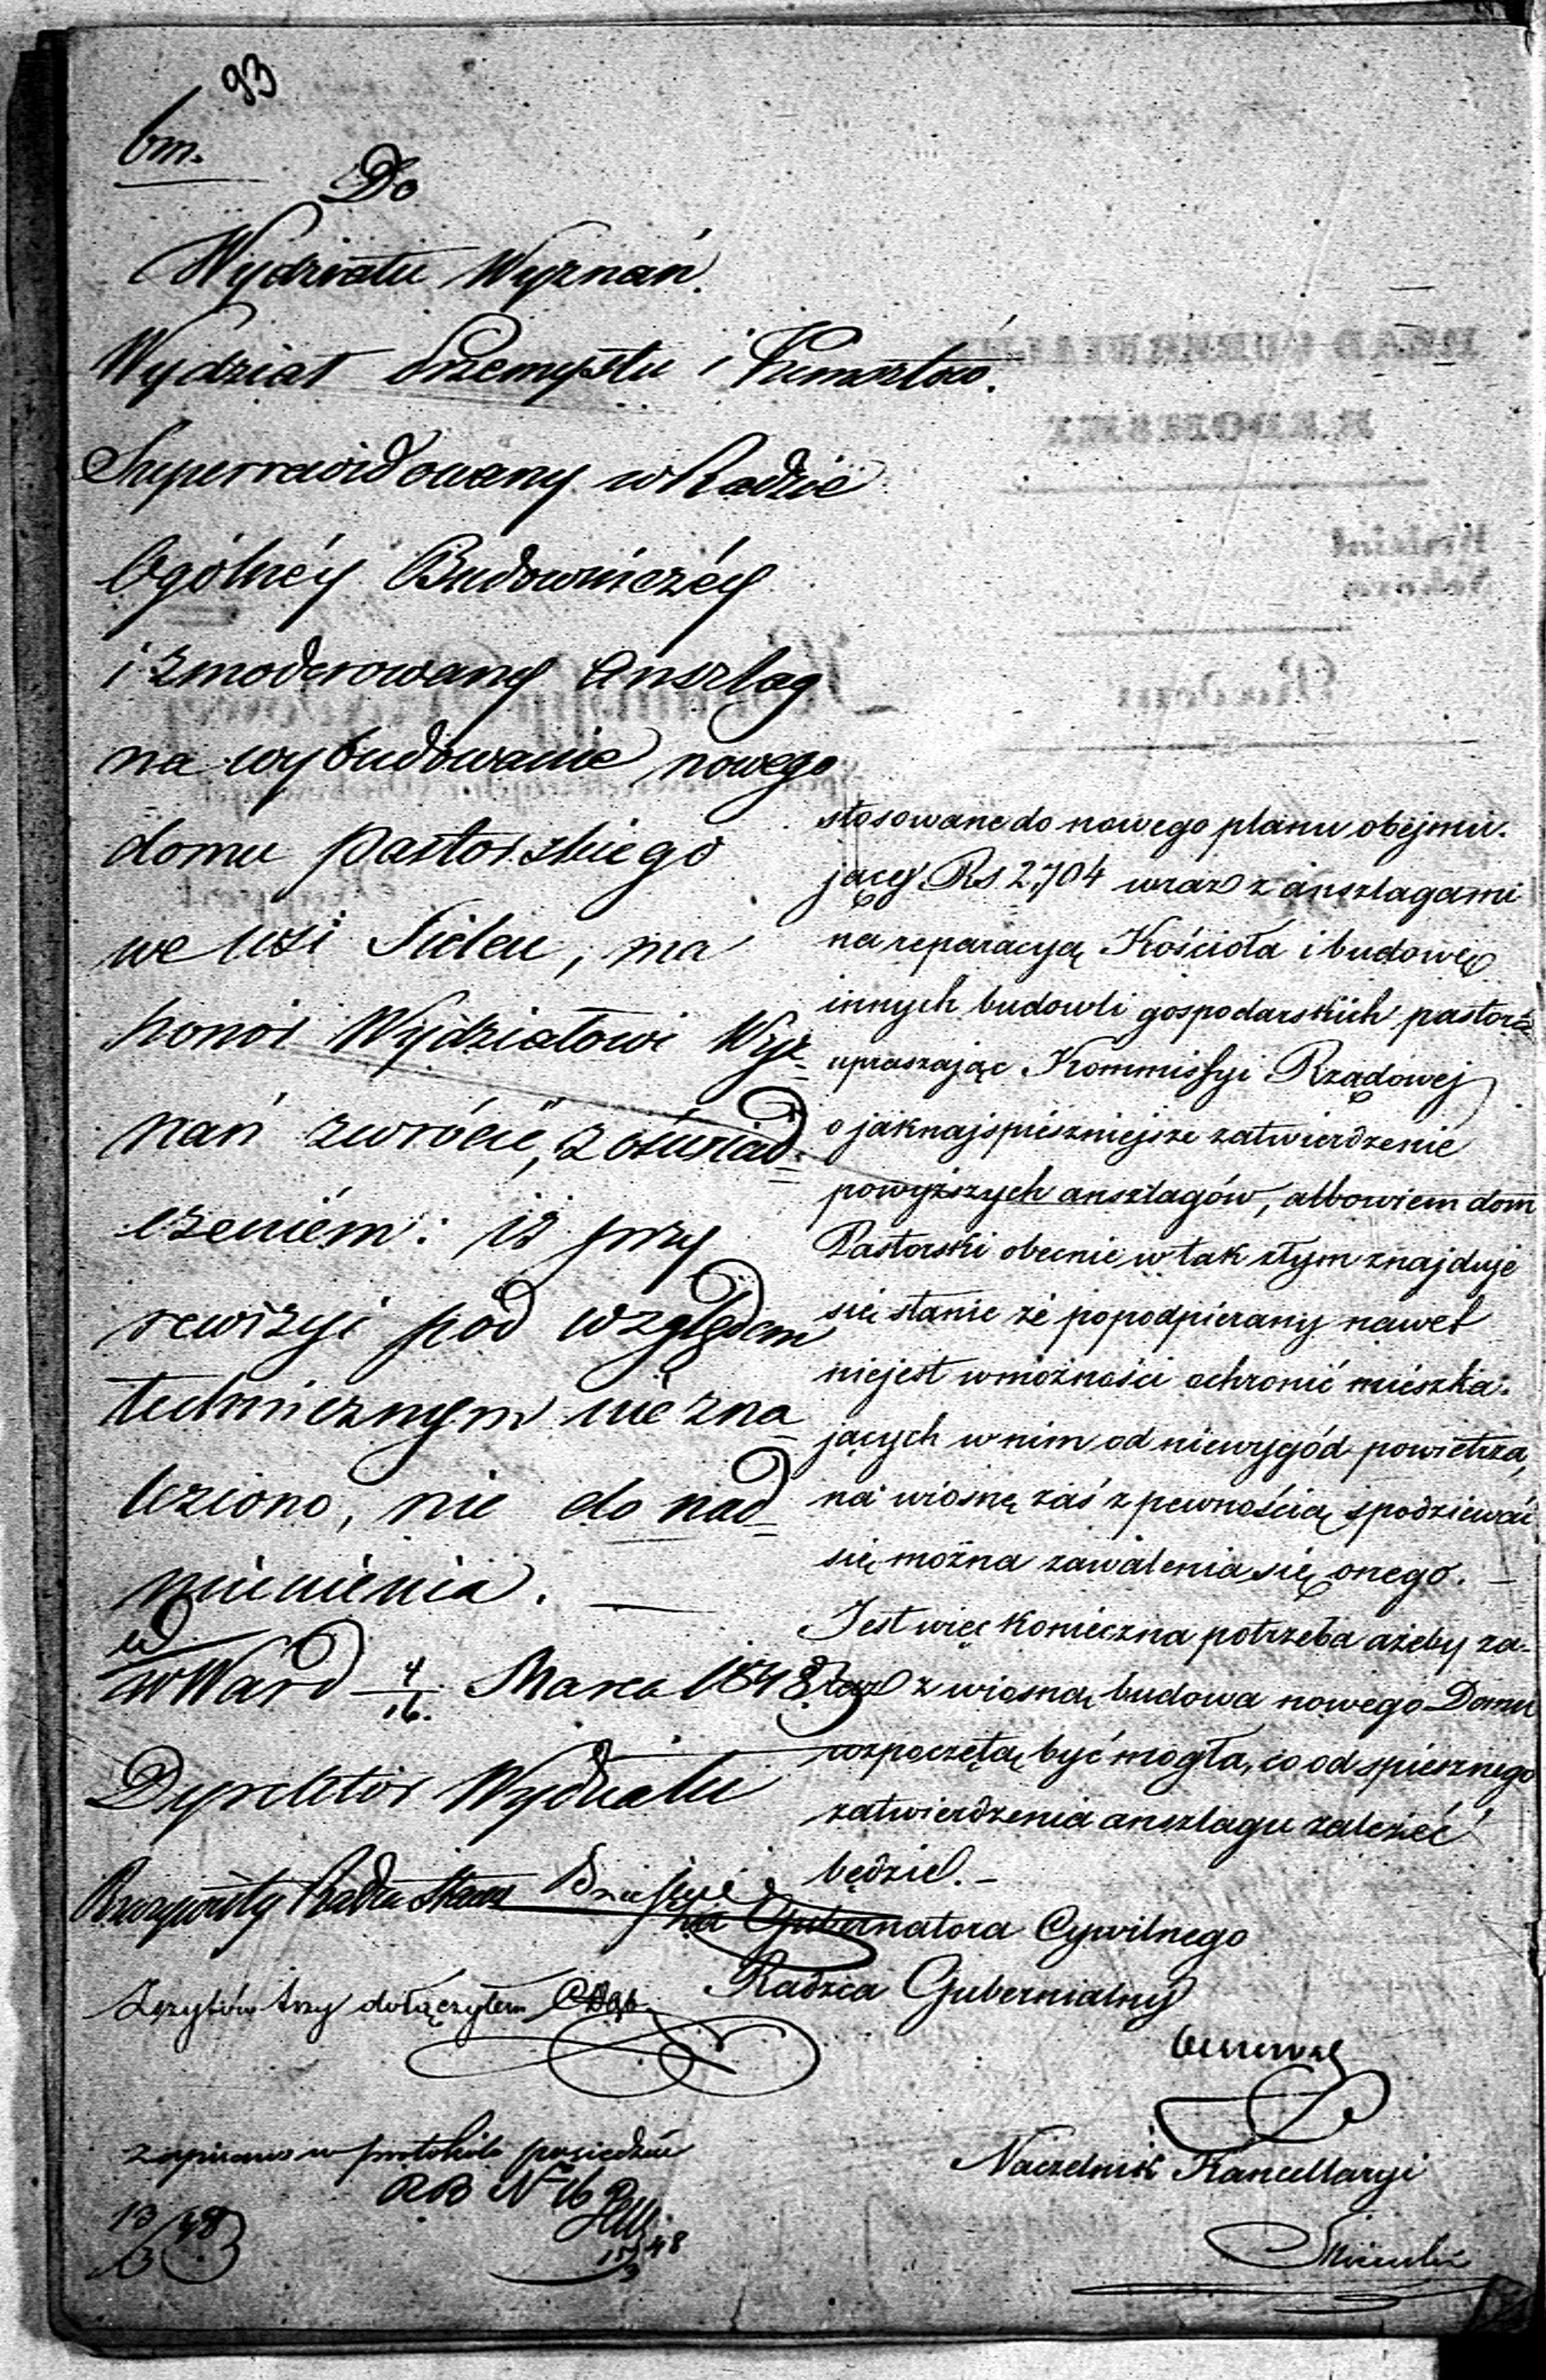 93
bm.
Do
Wydziału Wyznań.
Wydział Przemysłu i Kunsztów.
Superrewidowany w Radzie
Ogólnéy Budowniczéy
i zmoderowany Anszlag
na wybudowanie nowego
domu pastorskiego
we wsi Sielcu, ma
honor Wydziałowi Wyz=
nań zwrócić, z oświad=
czeniem: iż przy
rewizyi pod względem
technicznym nie zna=
leziono, nic do nad=
mienienia. —
w Warsd 4/16. Marca 1848
Dyrektor Wydziału
Rzeczywisty Radca Stanu
Zeszytów trzy dołączyłem
zapisano w protokule posiedzeń
RB N 16
13/3 48
15/3 48
stosowane do nowego planu obejmu-
jący Rs 2,704 wraz z anszlagami
na reparacyą Kościoła i budowę
innych budowli gospodarskich pastora
upraszając Kommissyi Rządowej
o jaknajspieszniejsze zatwierdzenie
powyższych anszlagów, albowiem dom
Pastorski obecnie w tak złym znajduje
się stanie że popodpierany nawet
niejest w możności ochronić mieszka-
jących w nim od niewygód powietrza,
na wiosnę zaś z pewnością spodziewać
się można zawalenia się onego. —
Jest więc konieczna potrzeba ażeby za-
raz z wiosną budowa nowego Domu
rozpoczętą być mogła, co od spiesznego
zatwierdzenia anszlagu zależeć
będzie. —
za Gubernatora Cywilnego
Radzca Gubernialny
Naczelnik Kancellaryi